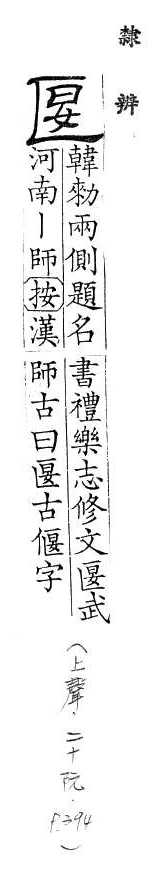 隸辨
匽
韓勑兩側題名
河南丨師按漢
書禮樂志修文匽武
師古曰匽古偃字
(上聲.二十阮.P.394)